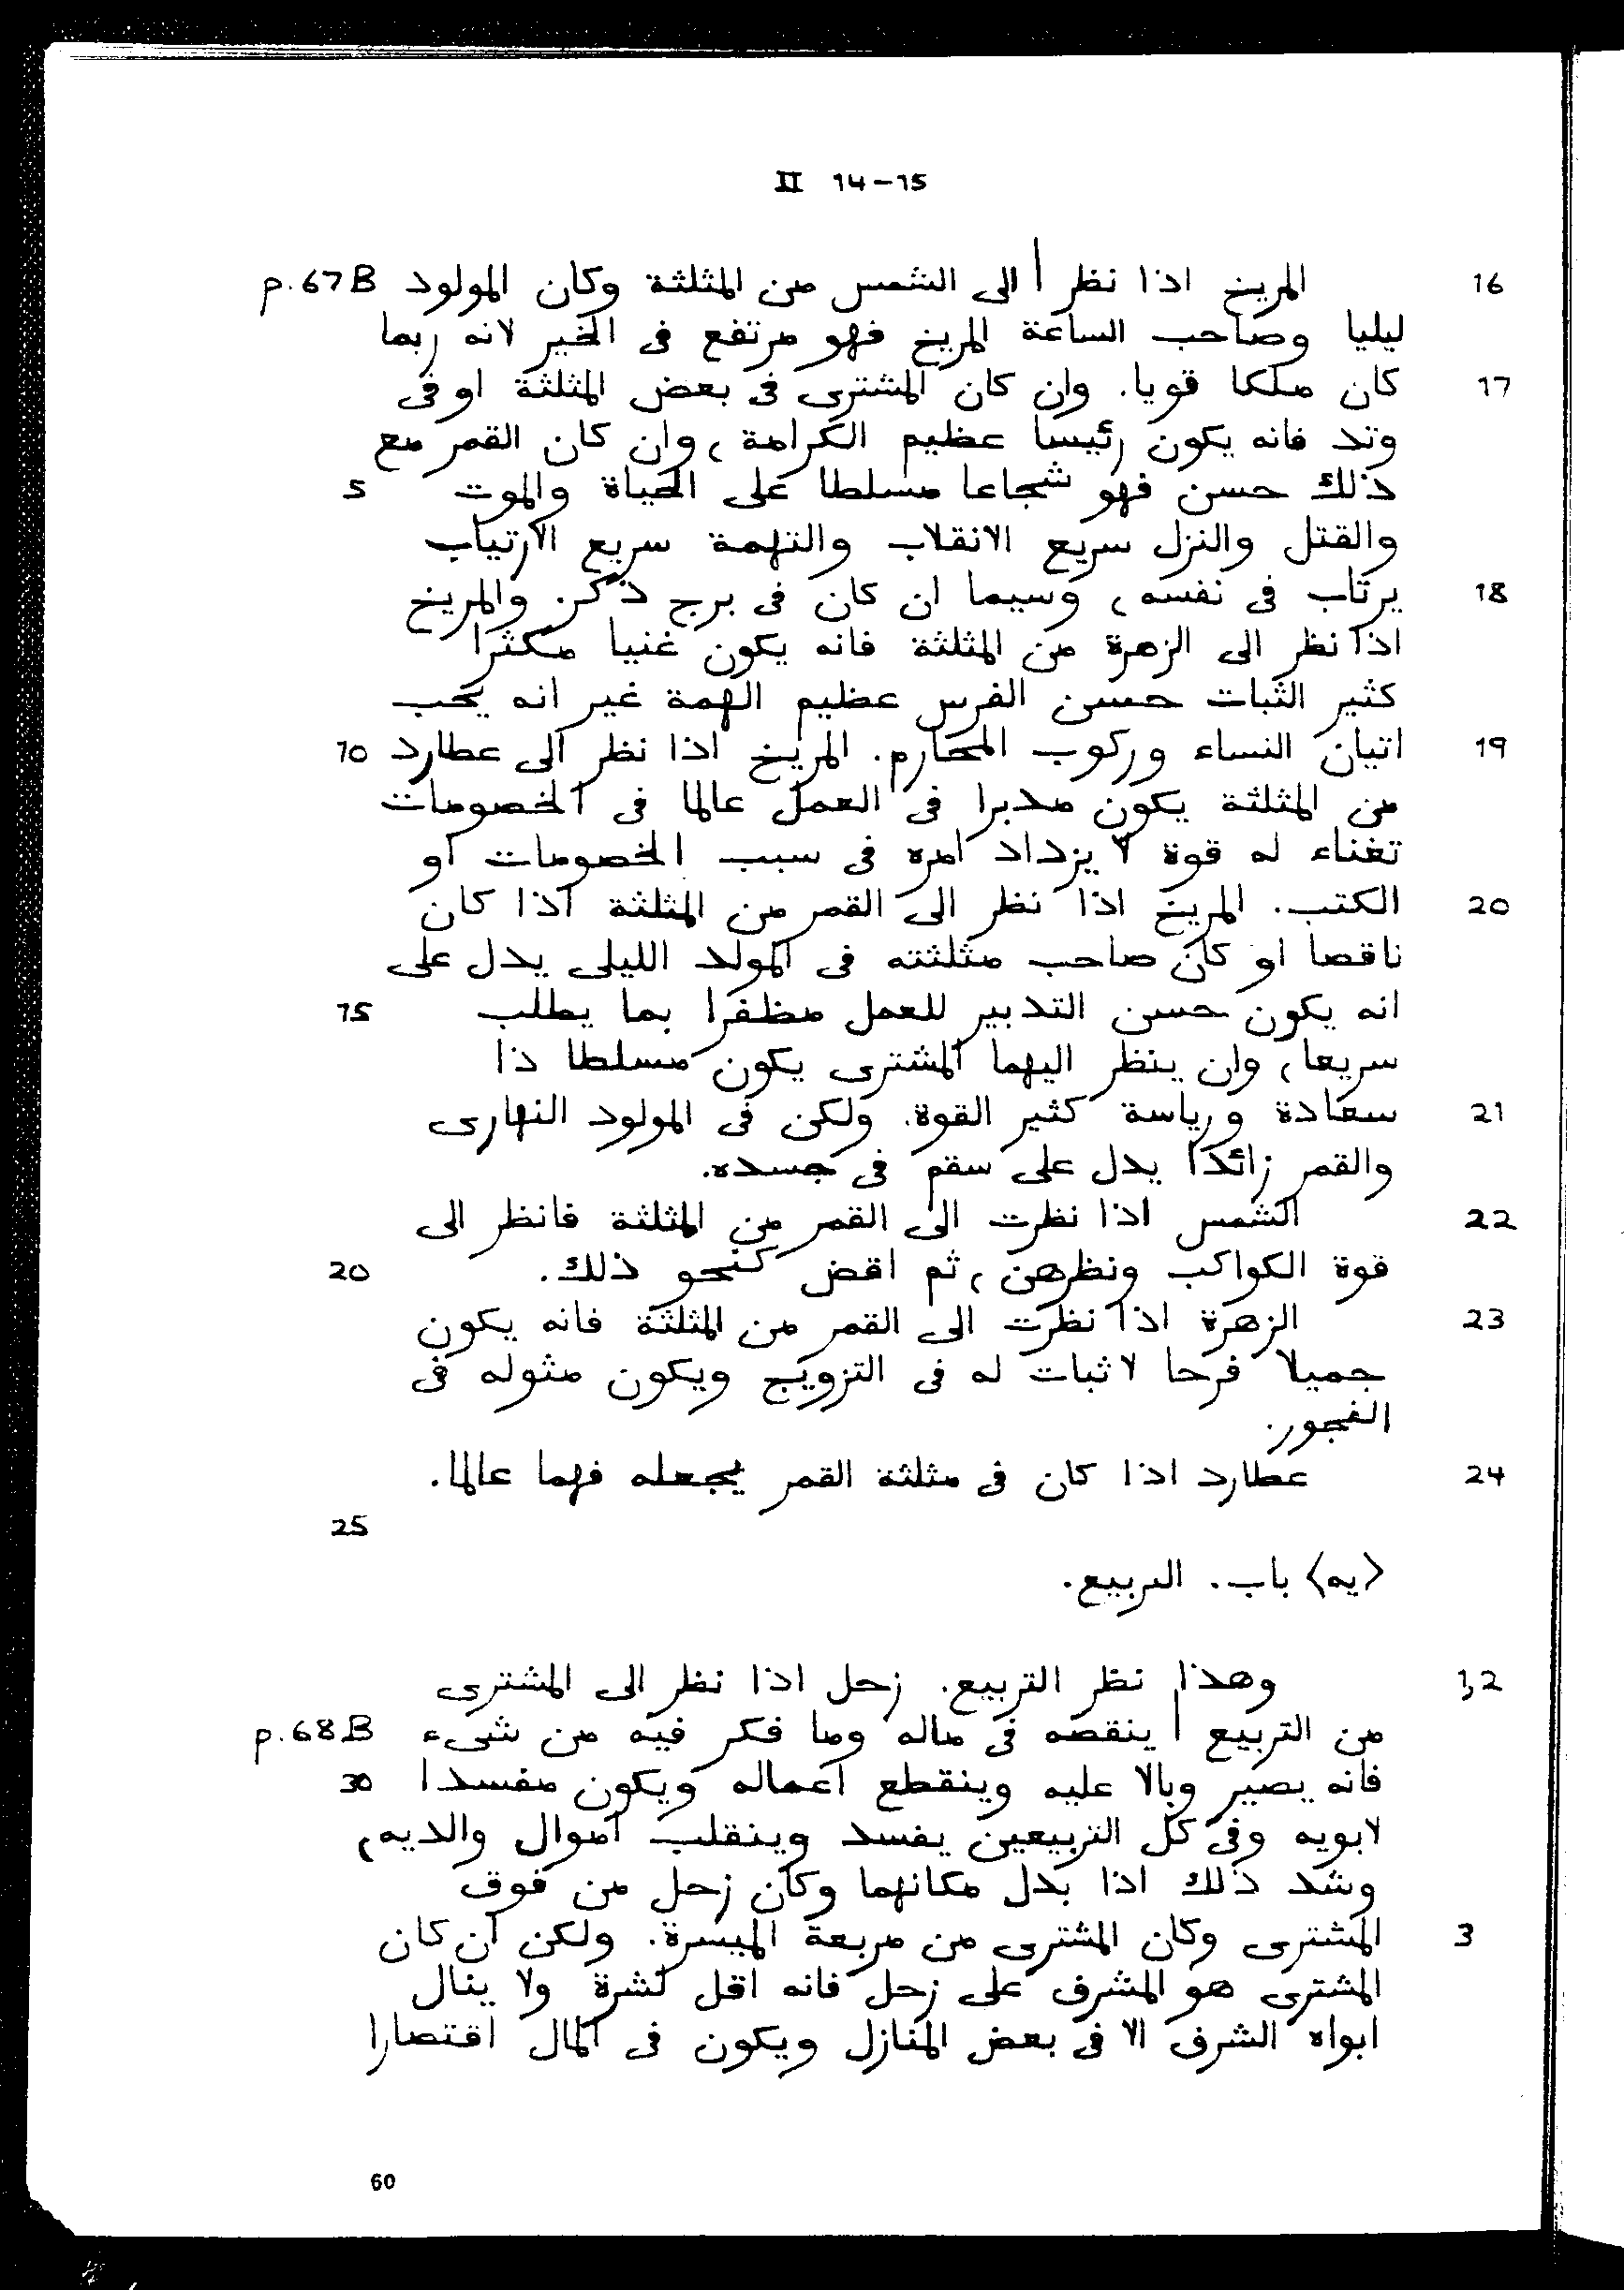 II 14-15
16 المريخ اذا نظر | الى الشمس من المثلثة وكان المولود p.67B
ليليا وصاحب الساعة المريخ فهو مرتفع فى الخير لانه ربما
17 كان ملكا قويا. وان كان المشترى فى بعض المثلثة او فى
وتد فانه يكون رئيسا عظيم الكرامة، وان كان القمر مع
ذلك حسن فهو شجاعا مسلطا على الحياة والموت 5
والقتل والنزل سريع الانقلاب والتهمة سريع الارتياب
18 يرتاب فى نفسه، وسيما ان كان فى برج ذكر. والمريخ
اذا نظر الى الزهرة من المثلثة فانه يكون غنيا مكثرا
كثير الثبات حسن الفرس عظيم الهمة غير انه يحب
19 اتيان النساء وركوب المحارم. المريخ اذا نظر الى عطارد 10
من المثلثة يكون مدبرا فى العمل عالما فى الخصومات
تغناء له قوة لا يزداد امره فى سبب الخصومات او
20 الكتب. المريخ اذا نظر الى القمر من المثلثة اذا كان
ناقصا او كان صاحب مثلثته فى المولد الليلى يدل على
انه يكون حسن التدبير للعمل مظفرا بما يطلب 15
سريعا، وان ينظر اليهما المشترى يكون مسلطا ذا
21 سعادة ورياسة كثير القوة. ولكن فى المولود النهارى
والقمر زائدا يدل على سقم فى جسده.
22 الشمس اذا نظرت الى القمر من المثلثة فانظر الى
قوة الكواكب ونظرهن، ثم اقض كنحو ذلك. 20
23 الزهرة اذا نظرت الى القمر من المثلثة فانه يكون
جميلا فرحا لا ثبات له فى التزويج ويكون مثوله فى
الفجور.
24 عطارد اذا كان فى مثلثة القمر يجعله فهما عالما.
25
〈يه〉 باب. التربيع.
1,2 وهذا نظر التربيع. زحل اذا نظر الى المشترى
من التربيع | ينقصه فى ماله وما فكر فيه من شىء p.68B
فانه يصير وبالا عليه وينقطع اعماله ويكون مفسدا 30
لابويه وفى كل التربيعين يفسد وينقلب اموال والديه،
وشد ذلك اذا بدل مكانهما وكان زحل من فوق
3 المشترى وكان المشترى من مربعة الميسرة. ولكن ان كان
المشترى هو المشرف على زحل فانه اقل لشرة ولا ينال
ابواه الشرف الا فى بعض المنازل ويكون فى المال اقتصارا
60